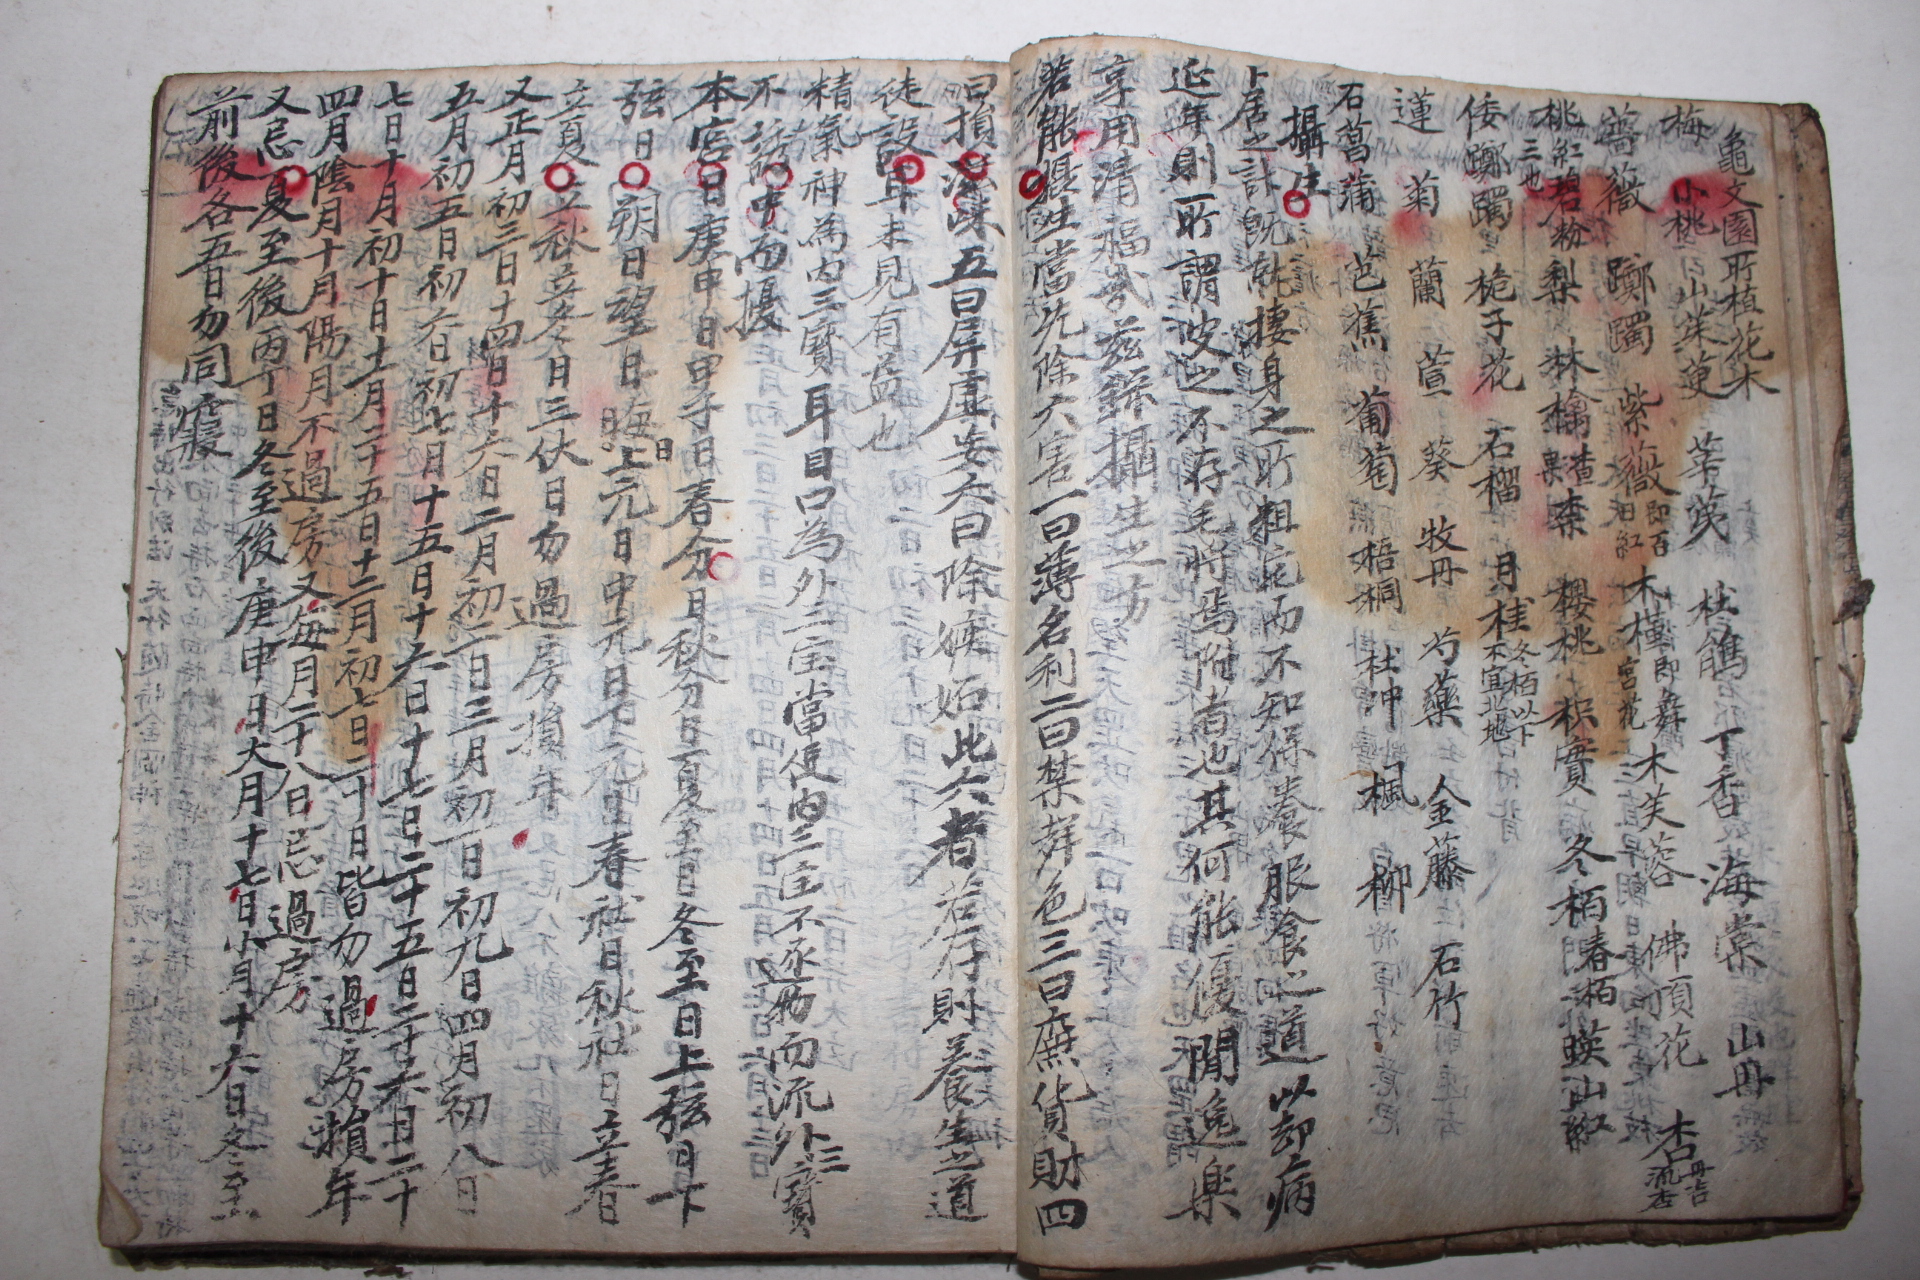 龜文園所植花木
梅 小桃 山茱萸 杜鵑 丁香 海棠 山丹
薔薇 躑躅 紫薇 即百日紅 木槿 即彛宮花 木芙蓉 佛頂花 杏 丹杏流杏
桃 紅碧粉三也 梨 林檎 樝 柰 櫻桃 枳實 冬栢 春栢 暎山紅
倭躑躅 梔子花 石榴 月桂 冬栢以下不宜北地
蓮 菊 蘭 萱 葵 牧丹 芍藥 金藤 石竹
石菖蒲 芭蕉 葡萄 梧桐 杜冲 楓 柳
攝生
卜居之計旣就捿身之所粗定而不知保養服食之道以却病
延年則所謂皮之不存毛將焉附者也其何能優閒逸樂
享用淸福哉茲錄攝生之方
若能攝生當先除六害一曰薄名利二曰禁聲色三曰廉貨財四
曰損滋味五曰屛虛妄六曰除嫉妬此六者若存則養生之道
徒設耳未見有益也
精氣神爲內三寶耳目口爲外三宝當使內三宝不逐物而流外三寶
不誘中而擾
本宮日庚申日甲子日春分日秋分日夏至日冬至日上弦日下
弦日朔日望日晦日上元日中元日下元日春社日秋社日立春
立夏立秋立冬日三伏日勿過房損年
又正月初三日十四日十六日二月初二日三月初一日初九日四月初八日
五月初五日初六日初七日十五日十六日十七日二十五日二十六日二十
七日十月初十日十一月二十五日十二月初七日二十日皆勿過房損年
四月陰月十月陽月不過房又每月二十八日忌過房
又忌夏至後丙丁日冬至後庚申日大月十七日小月十六日冬至
前後各五日勿同寢